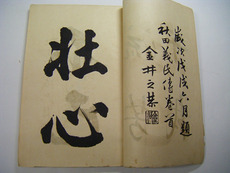 歲次戊戌六月題
秋田義民傳卷首
金井之恭
壯心